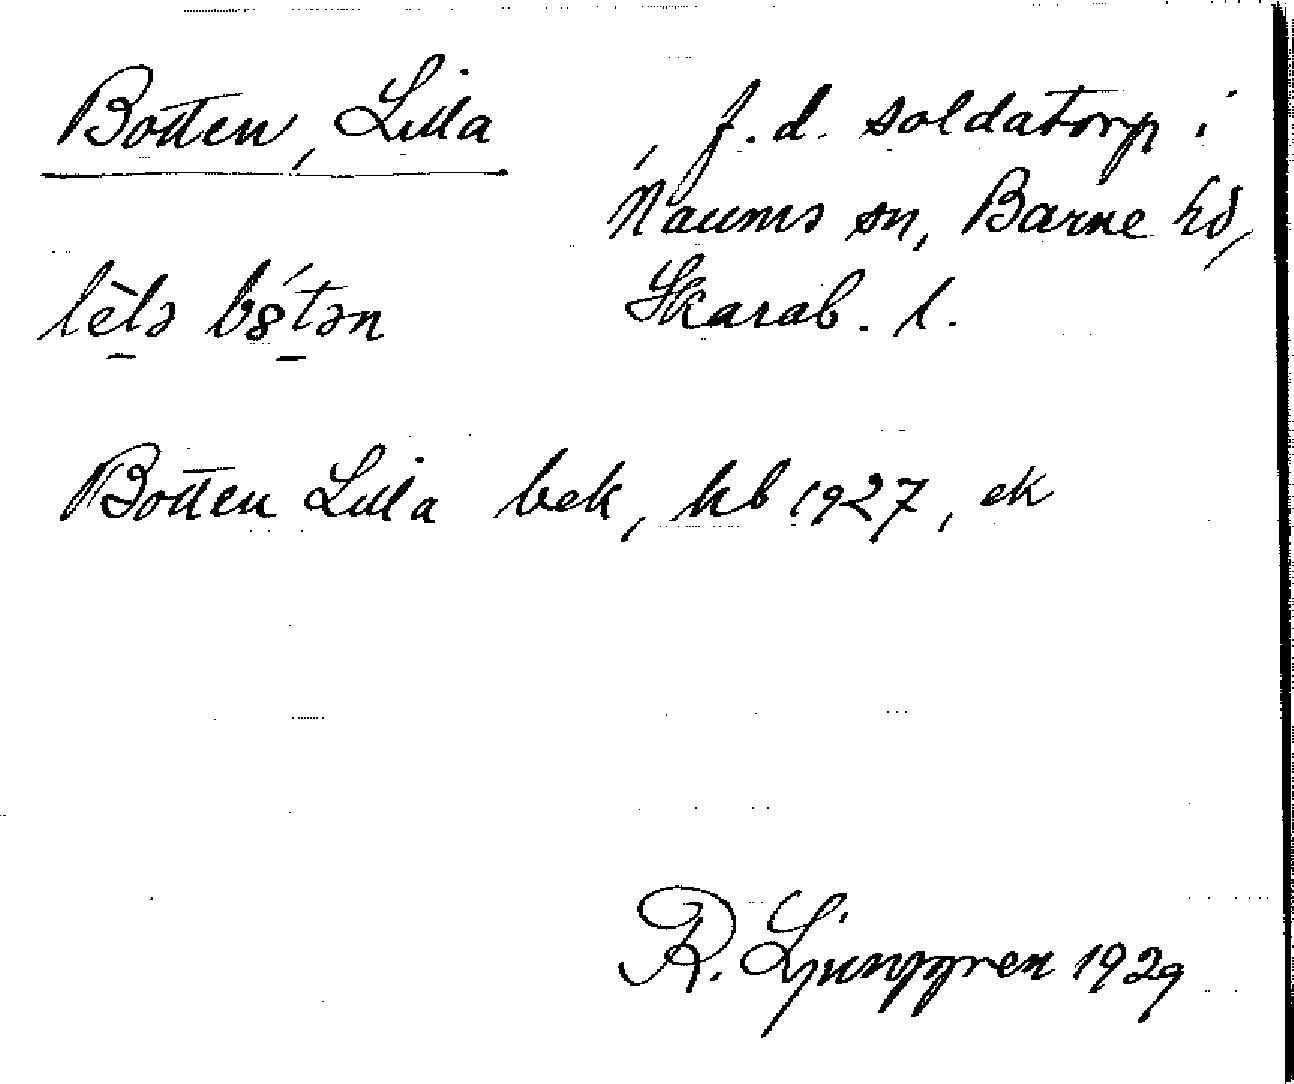 Botten, Lilla, f.d. soldatorp i
Naums sn, Barne hd,
Skarab. l.
lèlə bótən
Botten Lilla bek, hb 1927, ek
R. Ljunggren 1929